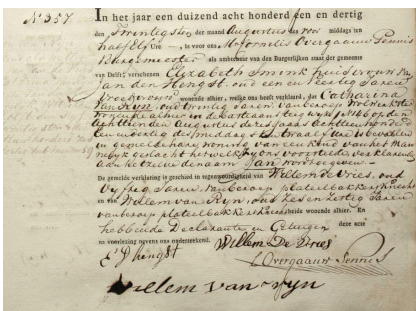 N° 357.
In het jaar een duizend acht honderd een en dertig
den Twintigsten der maand Augustus des voor middags ten
half Elf Ure, is voor ons Overgaauw Pennis
Burgemeester als ambtenaar van den Burgerlijken staat der gemeente
van Delft, verschenen Elizabeth Smonk huisvrouw van
Jan den Hengst, oud een en Veertig Jaren
Vroedvrouw wonende alhier, welke ons heeft verklaard, dat Catharina
van Ryn, oud Dertig Jaren, van beroep
wonende alhier in de wyk 4 N° 146 op den
Achttienden Augustus dezes Jaars Achttien honderd
een en dertig des middags ten twaalf ure is bevallen
in gemelde hare woning van een Kind van het Man
nelyk geslacht hetwelk zy ons voorstelde, verklarende
aan hetzelve den naam Jan
De gemelde verklaring is geschied in tegenwoordigheid van Willem de Vries, oud
Vyftig Jaren, van beroep plateelbakkersknecht
en van Willem van Ryn, oud Zes en Zestig Jaren
van beroep plateelbakkersknecht beide wonende alhier. En
hebbende Declarante en Getuigen deze acte
na voorlezing nevens ons onderteekend.
Willem De Vries
Hengst
Overgaauw Pennis
Willem van ryn